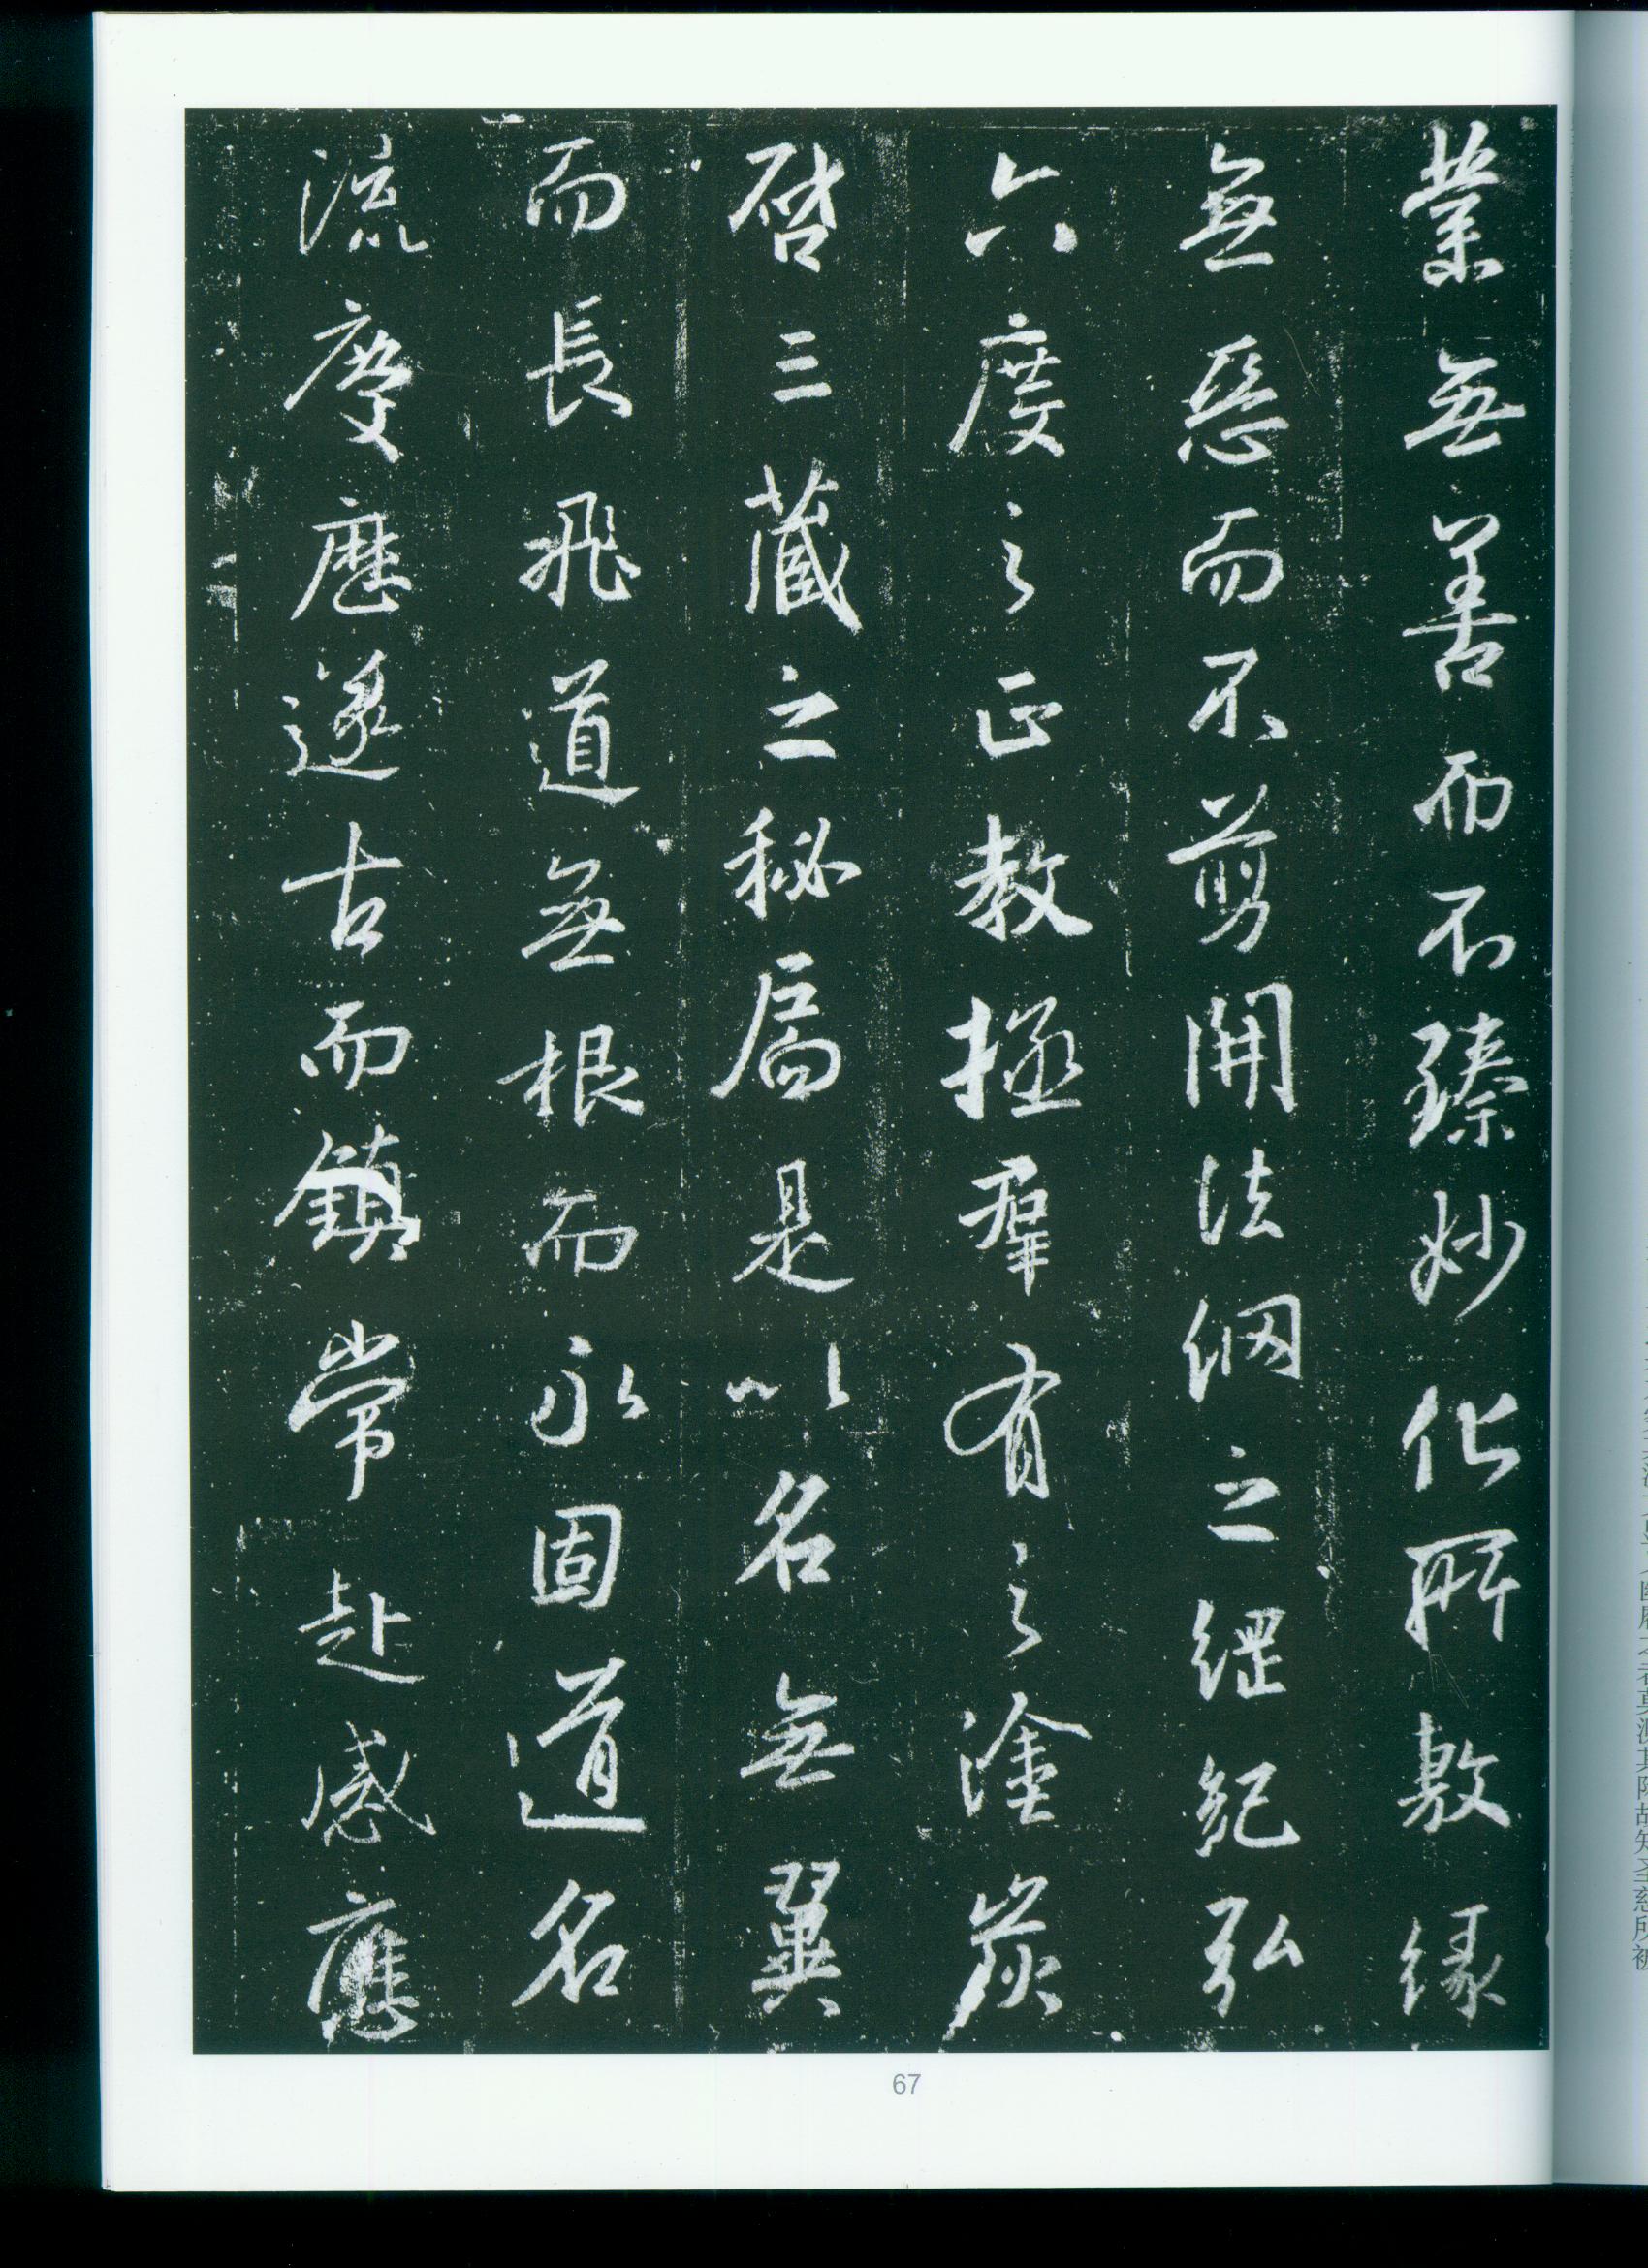 業無善而不臻妙化所敷緣
無惡而不剪開法網之綱紀弘
六度之正教拯群有之塗炭
啓三藏之秘扃是以名無翼
而長飛道無根而永固道名
流慶歷遂古而鎮常赴感應
67